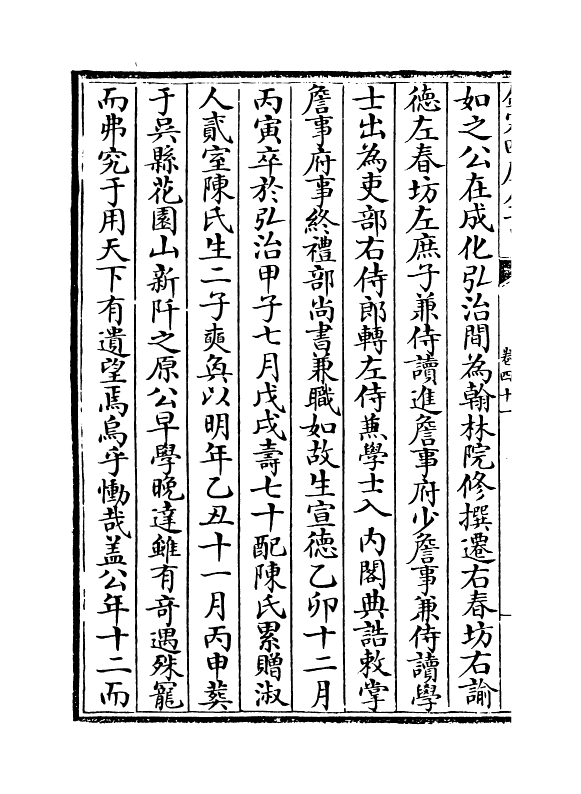 卷四十一
如之公在成化弘治間為翰林院修撰遷右春坊右諭
德左春坊左庶子兼侍讀進詹事府少詹事兼侍讀學
士出為吏部右侍郎轉左侍兼學士入内閣典誥敕掌
詹事府事終禮部尚書兼職如故生宣德乙卯十二月
丙寅卒於弘治甲子七月戊戌壽七十配陳氏累贈淑
人貳室陳氏生二子奭奐以明年乙丑十一月丙申葬
于吳縣花園山新阡之原公早學晚達雖有奇遇殊寵
而弗究于用天下有遺望焉烏乎慟哉盖公年十二而